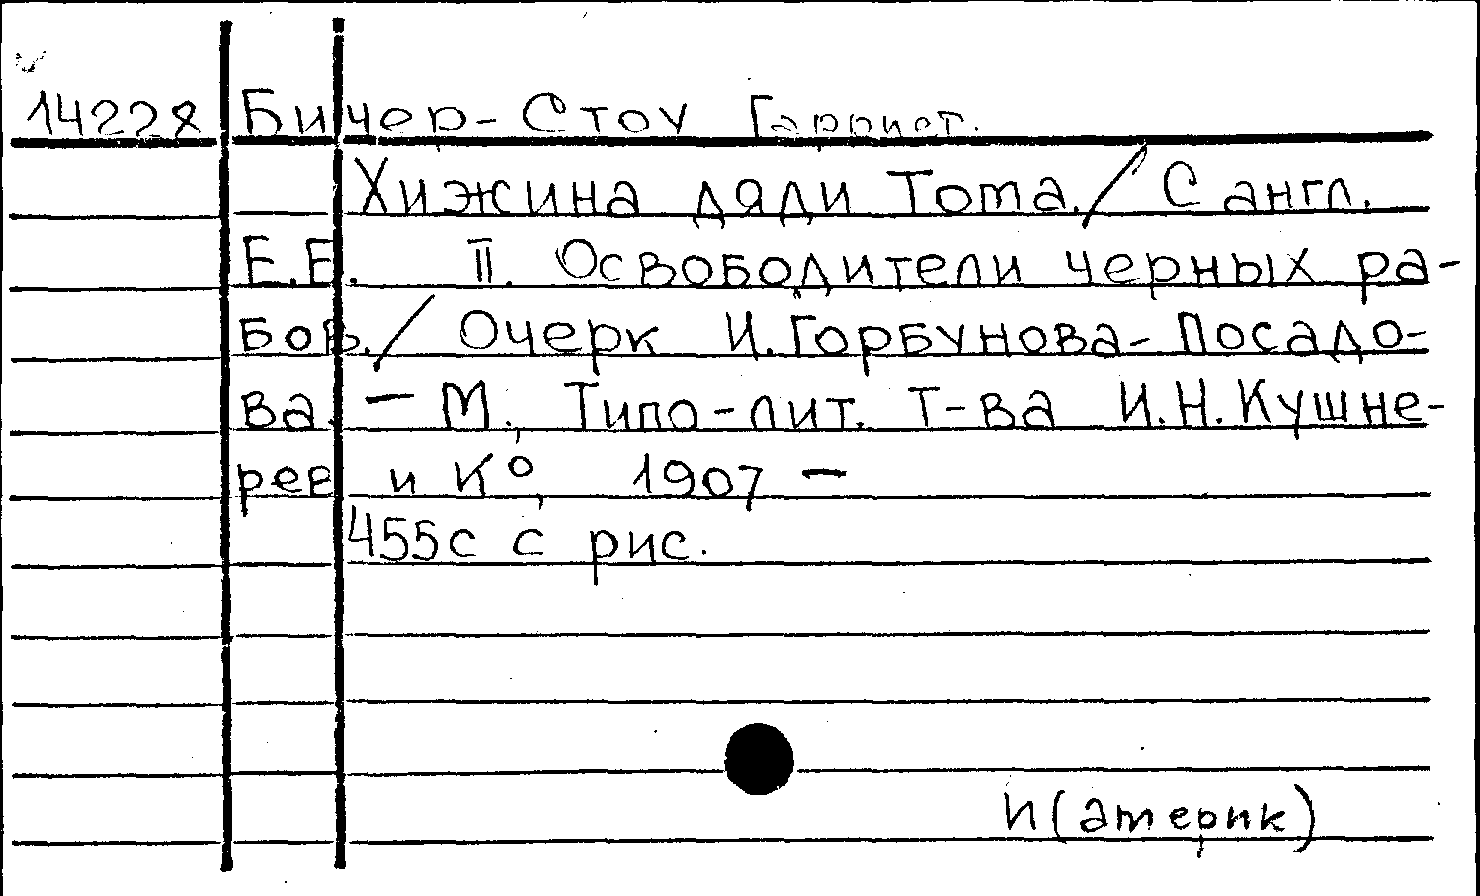 14228 Бичер-Стоу Гарриет.
Хижина дяди Тома./ С англ.
Е.Б. II. Освободители черных ра-
бов./ Очерк И.Горбунова-Посадо-
ва. — М., Типо-лит. Т-ва И.Н.Кушне-
рев и К°, 1907 —
455с с рис.
И(америк)